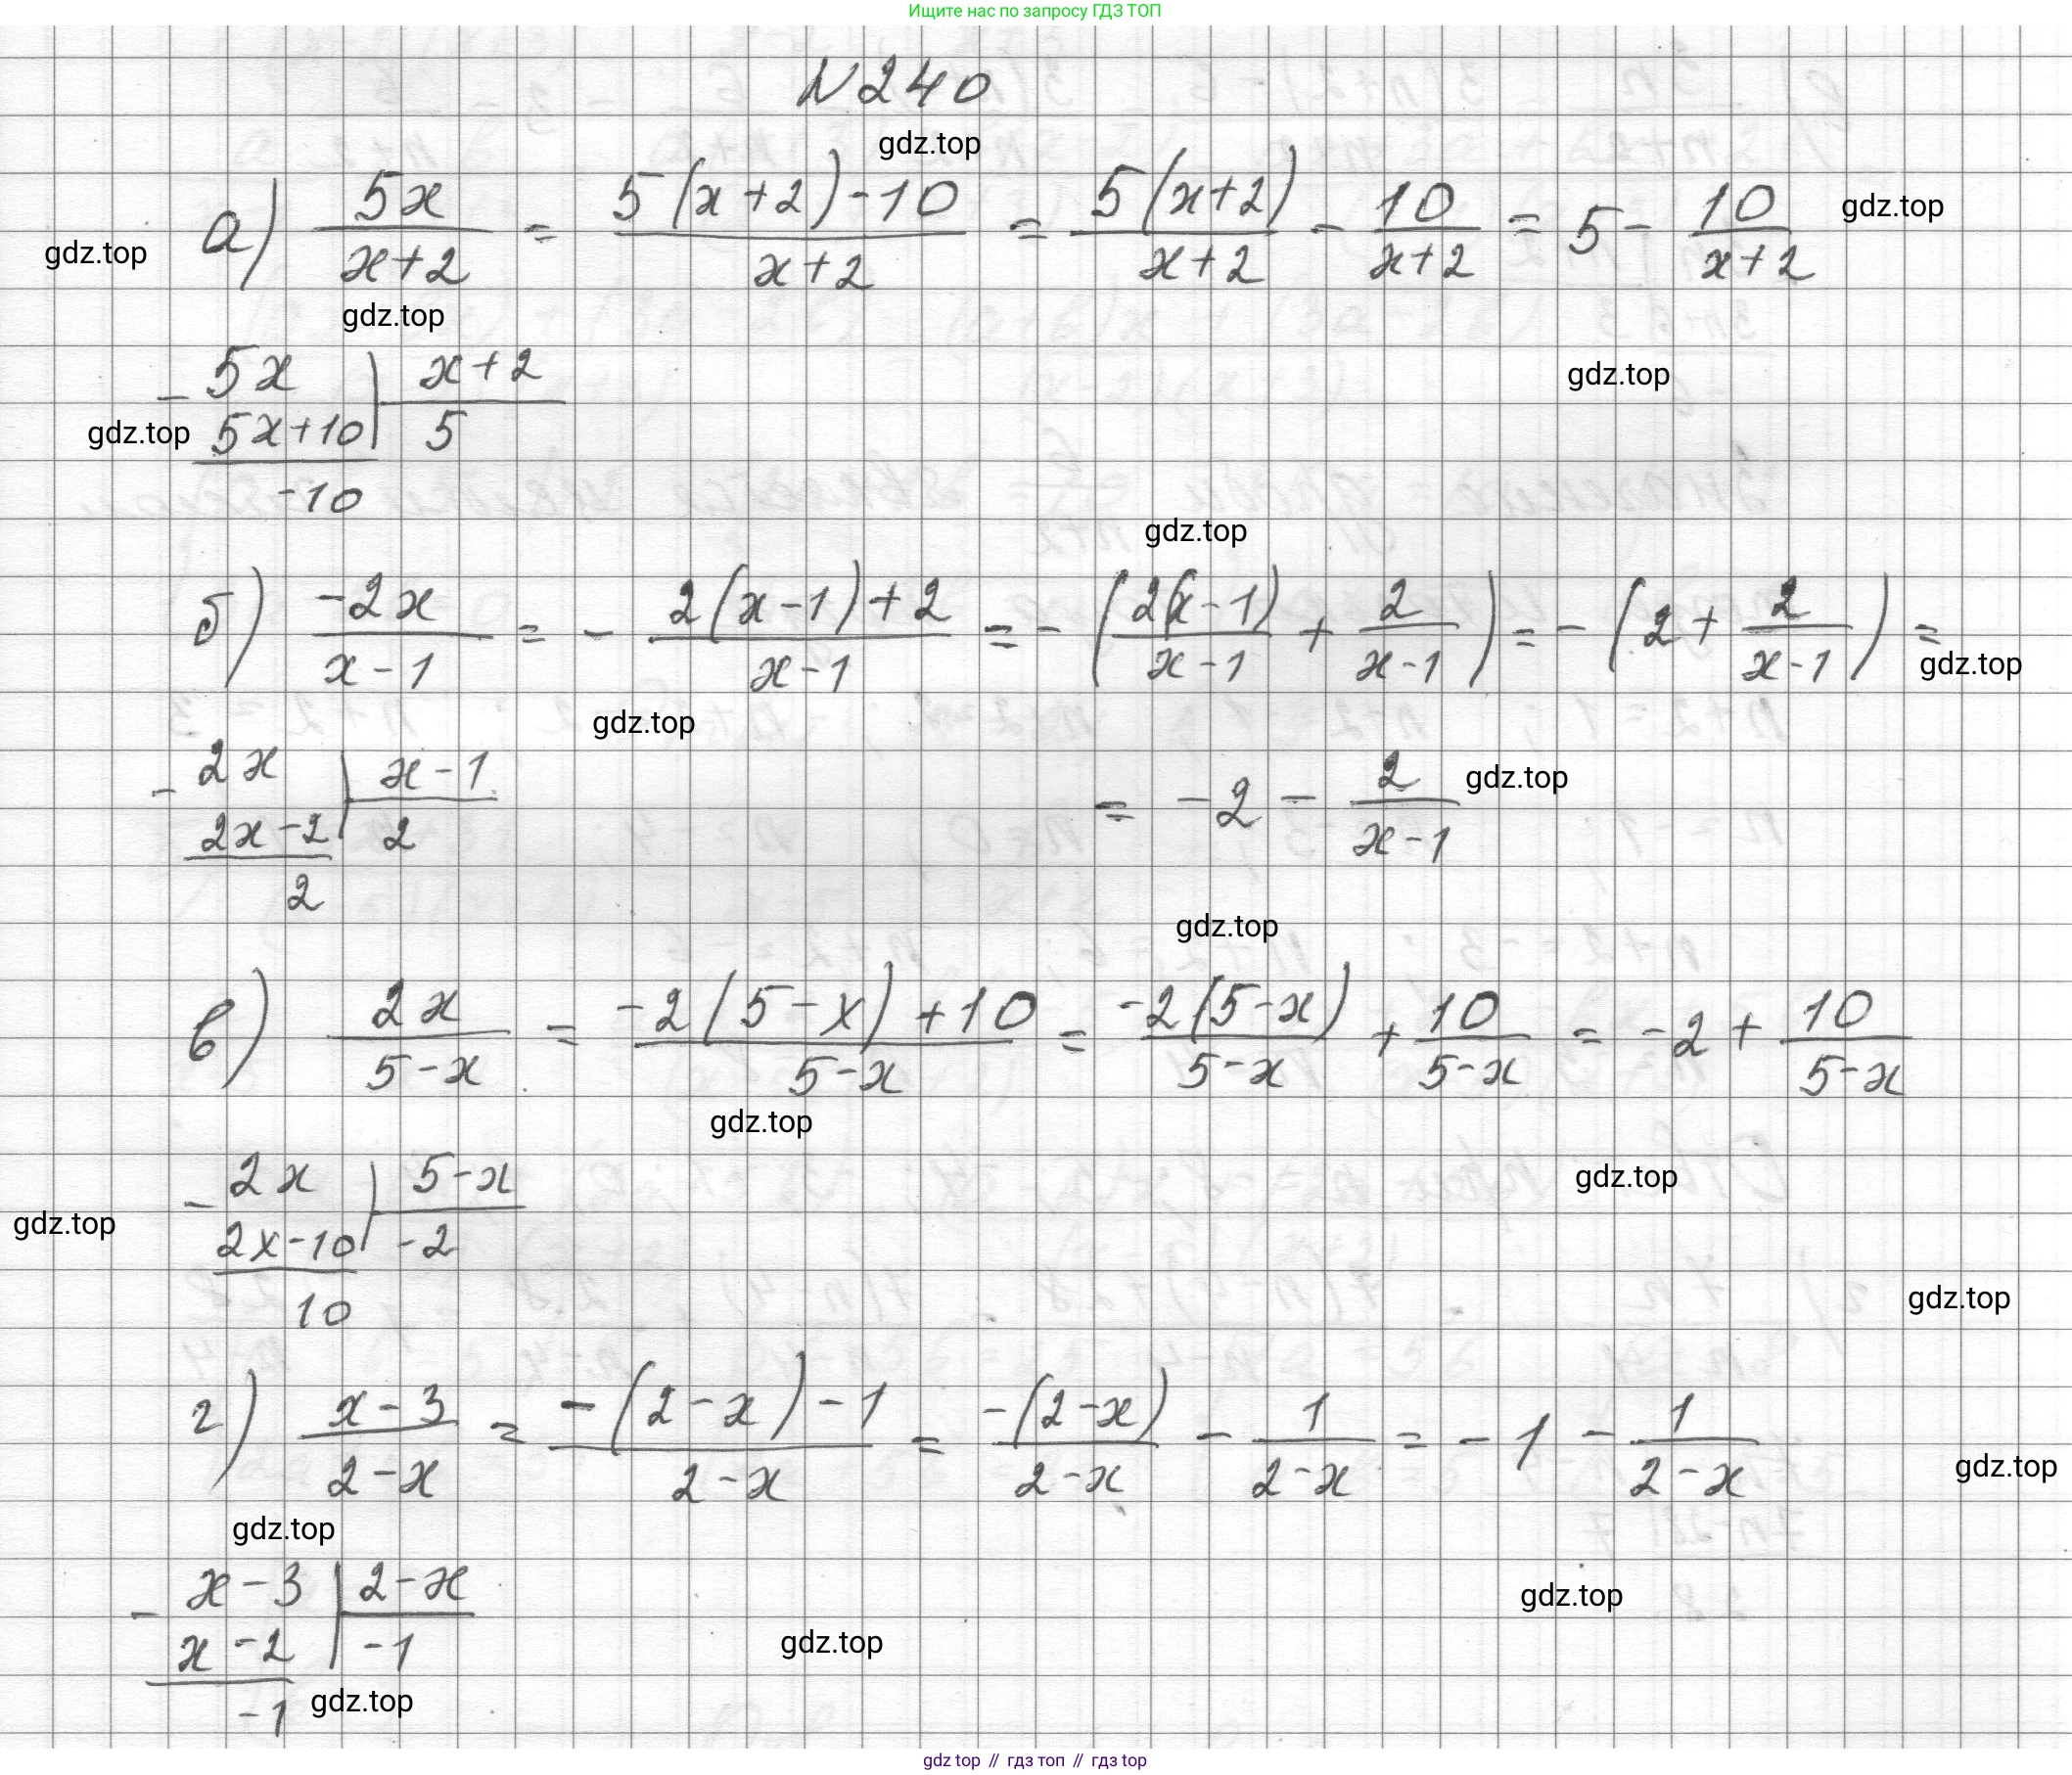 Ищите нас по запросу ГДЗ ТОП
N240
gdz.top
а) 5x/(x+2) = (5(x+2)-10)/(x+2) = 5(x+2)/(x+2) - 10/(x+2) = 5 - 10/(x+2) gdz.top
gdz.top
gdz.top
- 5x | x+2
gdz.top
gdz.top 5x+10 | 5
-10
gdz.top
б) -2x/(x-1) = - (2(x-1)+2)/(x-1) = - (2(x-1)/(x-1) + 2/(x-1)) = - (2 + 2/(x-1)) =
gdz.top
gdz.top
- 2x | x-1
= -2 - 2/(x-1) gdz.top
2x-2 | 2
2
gdz.top
в) 2x/(5-x) = (-2(5-x)+10)/(5-x) = -2(5-x)/(5-x) + 10/(5-x) = -2 + 10/(5-x)
gdz.top
- 2x | 5-x
gdz.top
gdz.top 2x-10 | -2
10
gdz.top
г) (x-3)/(2-x) = (-(2-x)-1)/(2-x) = -(2-x)/(2-x) - 1/(2-x) = -1 - 1/(2-x)
gdz.top
gdz.top
- x-3 | 2-x
gdz.top
x-2 | -1
gdz.top
-1 gdz.top
gdz top // гдз топ // гдз top